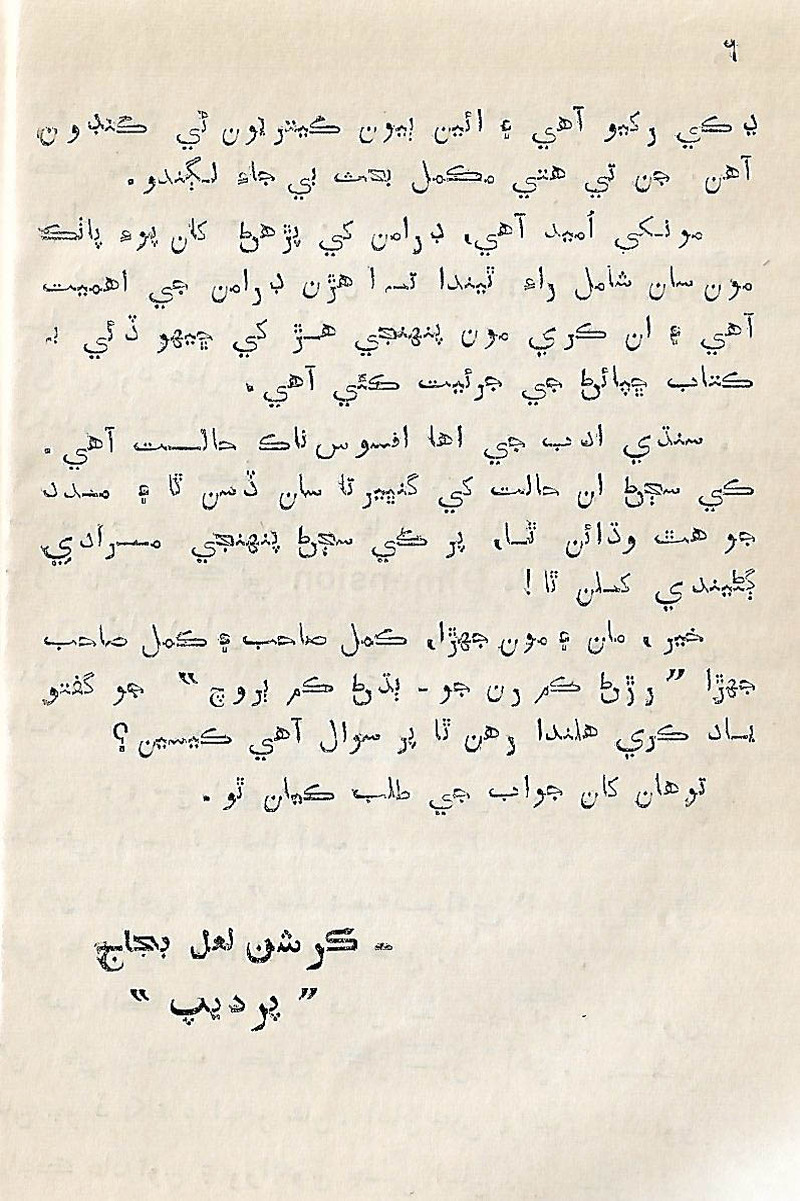 ۶
ڍڪي رکيو آهي ۽ ائين ٻيون ڪيتريون ئي ڪنڊون
آهن جن تي هتي مڪمل بحث بي جاءِ لڳندو.
مونکي اُميد آهي، ڊرامن کي پڙهڻ کان پوءِ پاٺڪ
مون سان شامل راءِ ٿيندا تہ اهڙن ڊرامن جي اهميت
آهي ۽ ان ڪري مون پنهنجي هڙ کي ڇيهو ڏئي بہ
ڪتاب ڇپائڻ جي جرئيت ڪئي آهي.
سنڌي ادب جي اها افسوس ناڪ حالت آهي.
ڪي سڄڻ ان حالت کي گنڀيرتا سان ڏسن ٿا ۽ مدد
جو هٿ وڌائن ٿا، پر ڪي سڄڻ پنهنجي مرادي
ڳڻيندي کلن ٿا!
خير، مان ۽ مون جهڙا، ڪمل صاحب ۽ ڪمل صاحب
جهڙا ” رڙڻ ڪم رن جو - ٻڌڻ ڪم ٻروچ “ جو گفتو
ياد ڪري هلندا رهن ٿا پر سوال آهي ڪيسين؟
توهان کان جواب جي طلب ڪيان ٿو.
- ڪرشن لعل بجاج
” پرديپ “